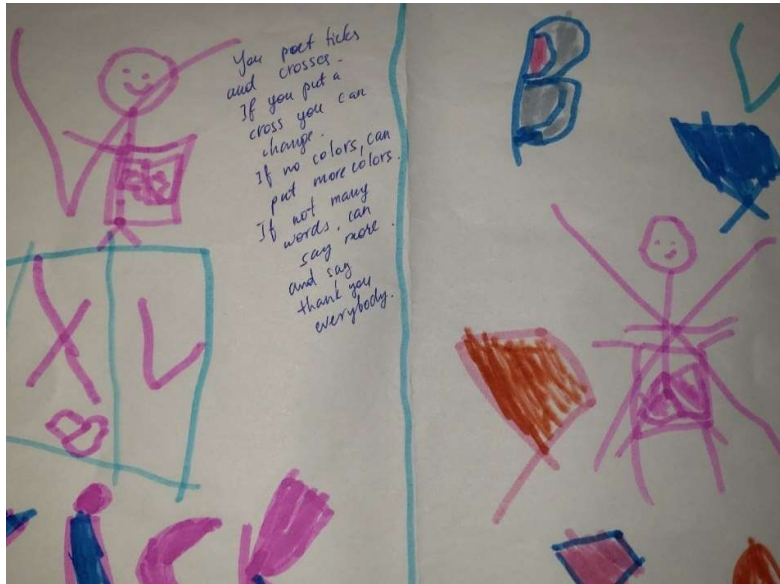 You poet ticks
and crosses.
If you put a
cross you can
change.
If no colors, can
put more colors.
If not many
words, can
say more.
and say
thank you
everybody.
B
X